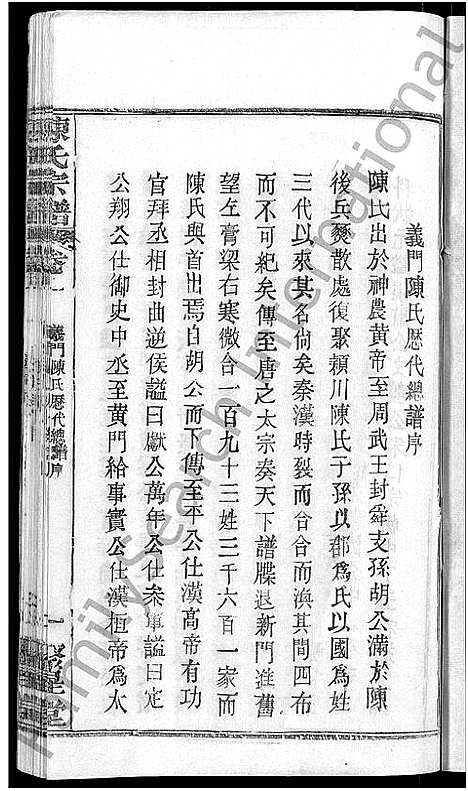 義門陳氏歷代總譜序
陳氏出於神農黃帝至周武王封舜支孫胡公滿於陳
後兵燹散處復聚頴川陳氏子孫以郡爲氏以國爲姓
三代以來其名尙矣秦漢時裂而合合而渙其間四布
而不可紀矣傳至唐之太宗奏天下譜牒退新門進舊
望左膏梁右寒微合一百九十三姓三千六百一家而
陳氏與首出焉自胡公而下傳至平公仕漢高帝有功
官拜丞相封曲逆侯謚曰獻公萬年公仕叅軍謚曰定
公翔公仕御史中丞至黃門給事實公仕漢桓帝爲太
陳氏宗譜
卷一
義門陳氏歷代總譜序
一
聚星堂
FamilySearch International